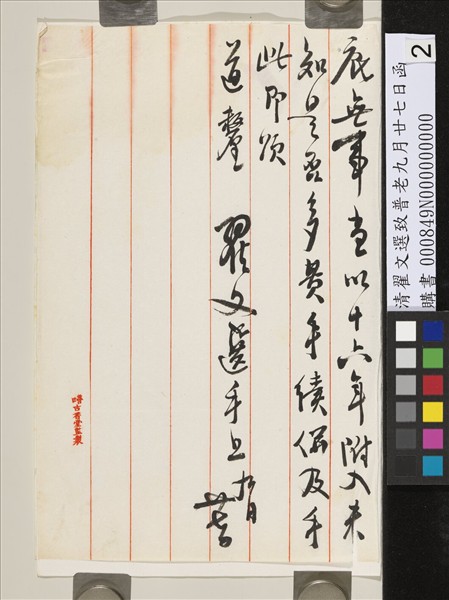 底無事當以十六年附入未
知是否多費手續價及手
此即頌
道釐
翟文選手上 九月
廿七日
清翟文選致普老九月廿七日函
購書 000849N000000000
2